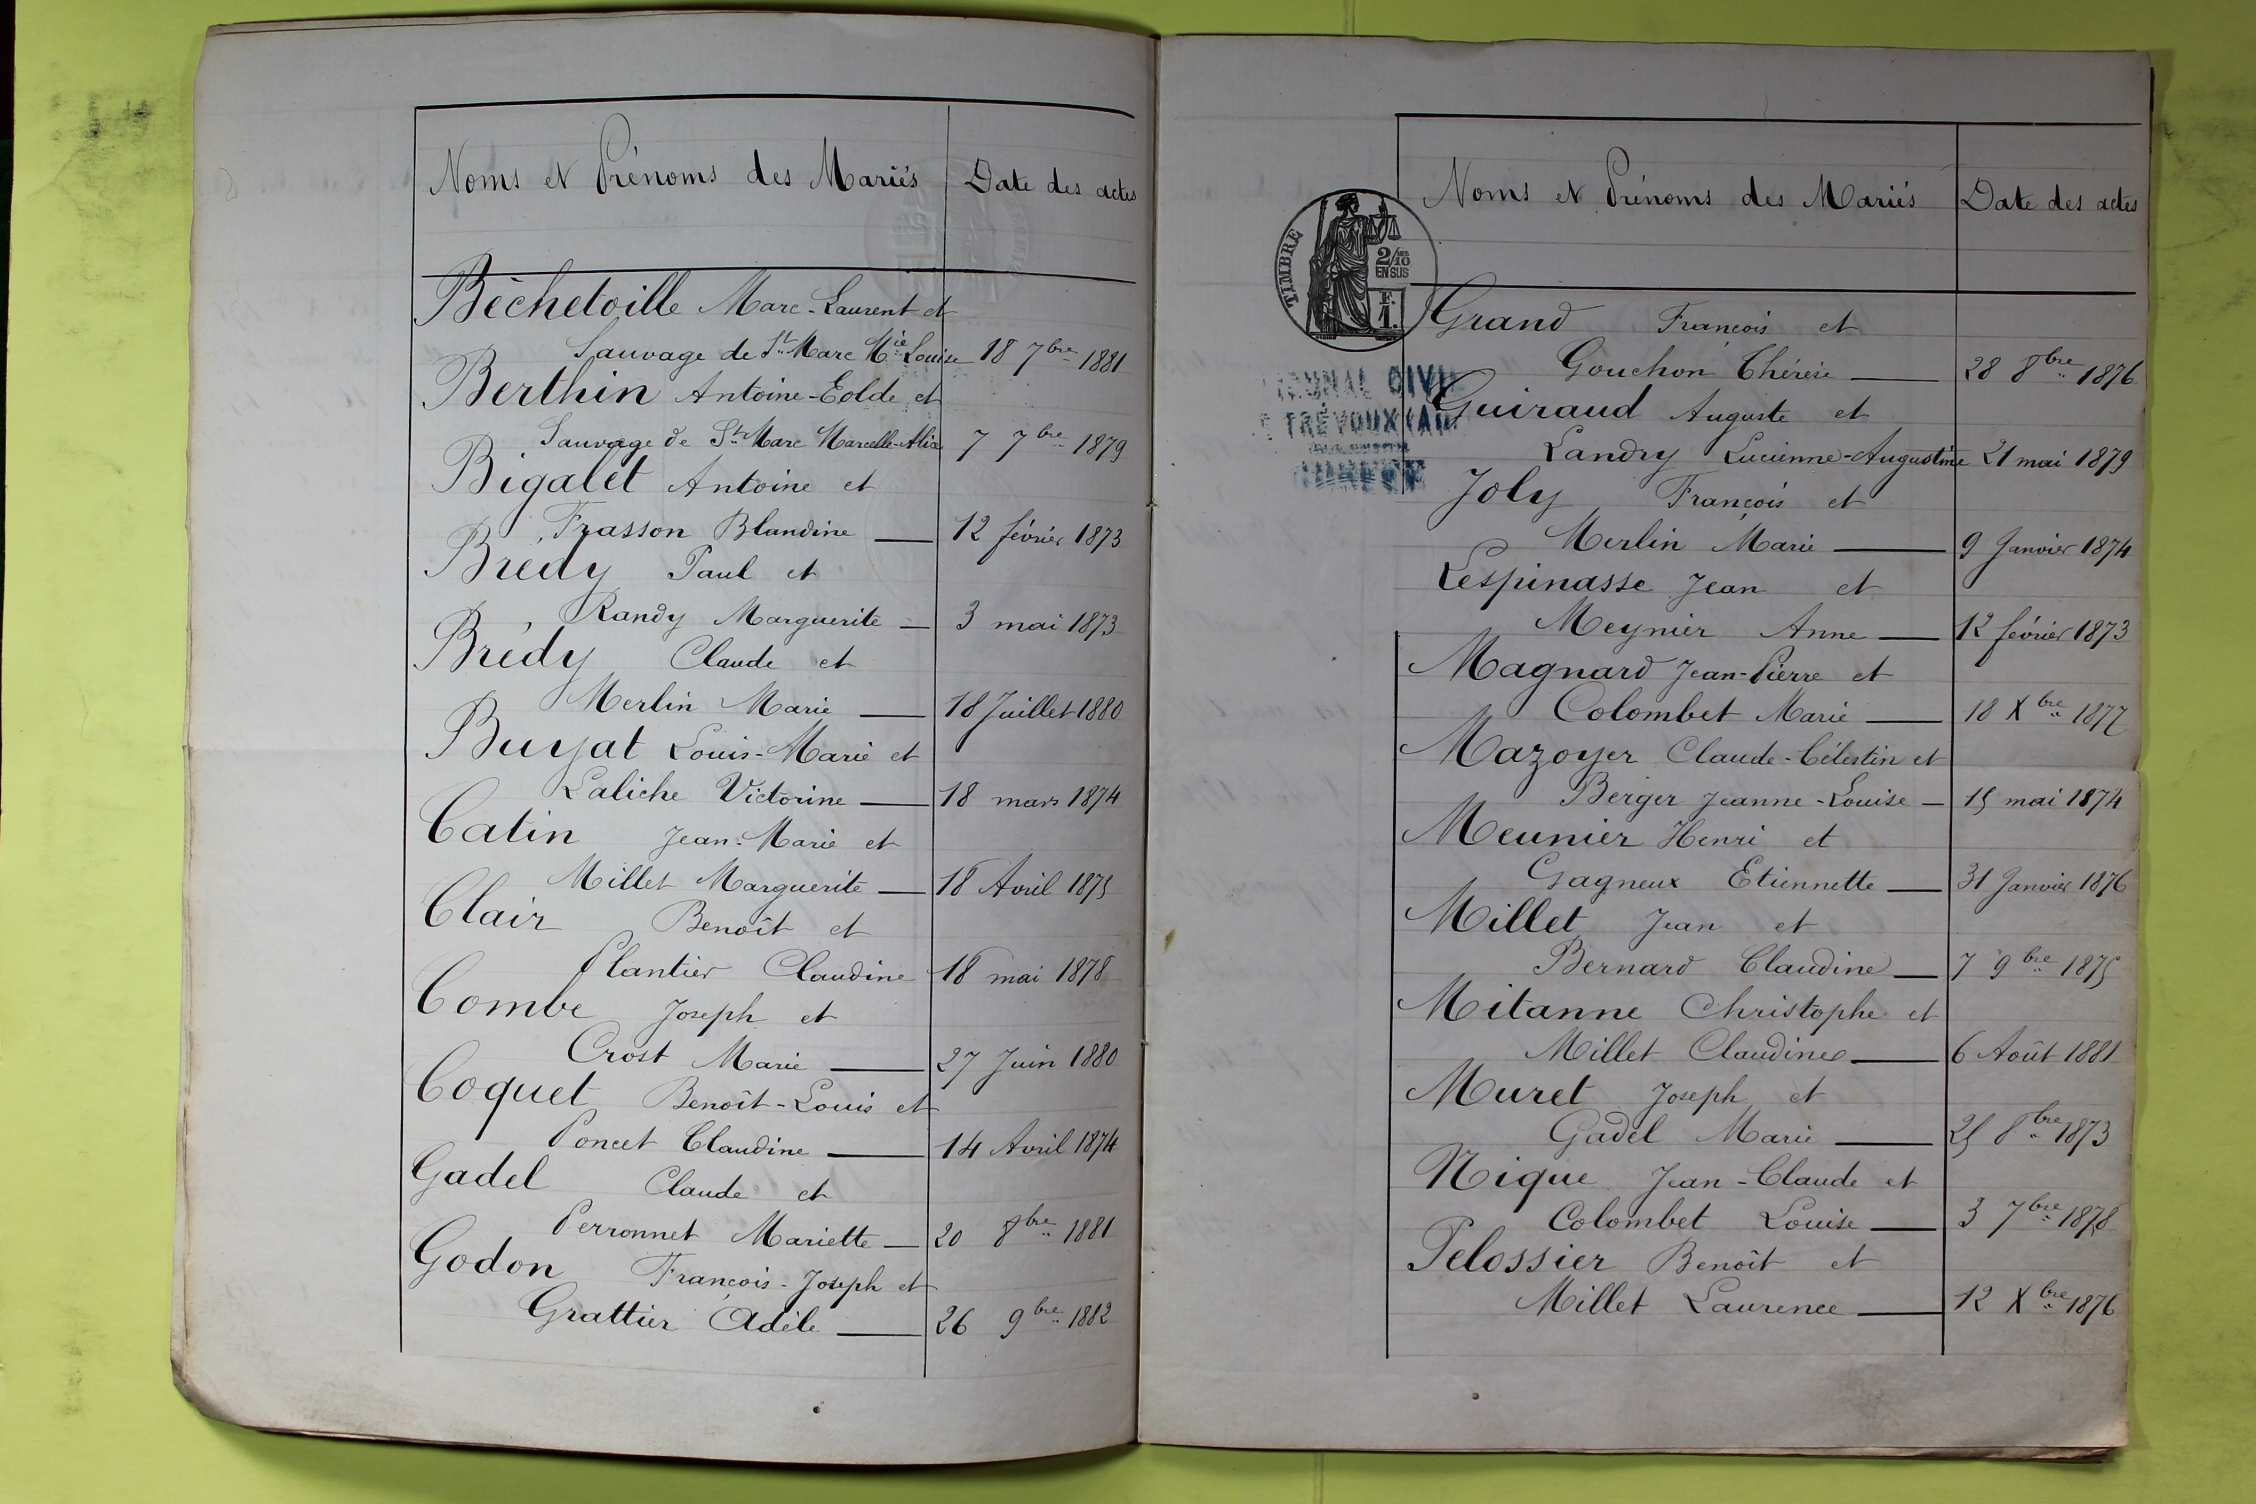 Noms et Prénoms des Mariés Date des actes
Béchetoille Marc-Laurent et
Sauvage de St Marc Mie Louise 18 7bre 1881
Berthin Antoine-Eolde et
Sauvage de St Marc Marcelle-Alix 7 7bre 1879
Bigalet Antoine et
Frasson Blandine 12 février 1873
Brédy Paul et
Randy Marguerite 3 mai 1873
Brédy Claude et
Merlin Marie 18 Juillet 1880
Buyat Louis-Marie et
Laliche Victorine 18 mars 1874
Catin Jean-Marie et
Millet Marguerite 18 Avril 1875
Clair Benoît et
Plantier Claudine 18 mai 1878
Combe Joseph et
Crost Marie 27 Juin 1880
Coquet Benoît-Louis et
Poncet Claudine 14 Avril 1874
Gadel Claude et
Perronnet Mariette 20 8bre 1881
Godon François-Joseph et
Grattier Adèle 26 9bre 1882
Noms et Prénoms des Mariés Date des actes
TIMBRE
2/10
EN SUS
F.
1.
TRIBUNAL CIVIL
TRÉVOUX (AIN)
Grand François et
Gouchon Thérèse 28 8bre 1876
Guiraud Auguste et
Landry Lucienne-Augustine 21 mai 1879
Joly François et
Merlin Marie 9 Janvier 1874
Lespinasse Jean et
Meynier Anne 12 février 1873
Magnard Jean-Pierre et
Colombet Marie 18 Xbre 1877
Mazoyer Claude-Célestin et
Berger Jeanne-Louise 15 mai 1874
Meunier Henri et
Gagneux Etiennette 31 Janvier 1876
Millet Jean et
Bernard Claudine 7 9bre 1875
Mitanne Christophe et
Millet Claudine 6 Août 1881
Muret Joseph et
Gadel Marie 25 8bre 1873
Nique Jean-Claude et
Colombet Louise 3 7bre 1878
Pelossier Benoît et
Millet Laurence 12 Xbre 1876